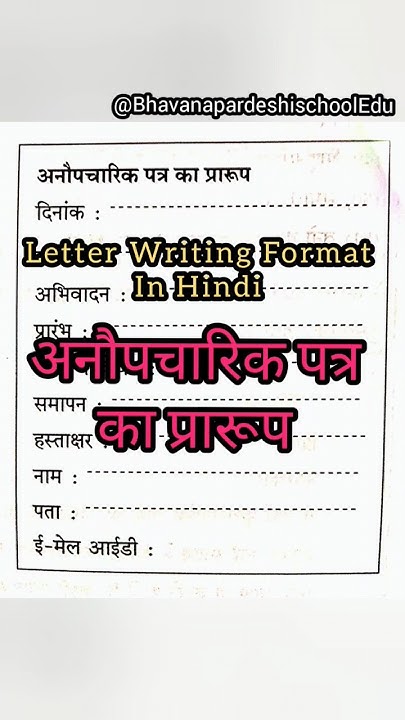 @BhavanapardeshischoolEdu
अनौपचारिक पत्र का प्रारूप
दिनांक :
Letter Writing Format
In Hindi
अभिवादन :
प्रारंभ :
अनौपचारिक पत्र
का प्रारूप
समापन :
हस्ताक्षर :
नाम :
पता :
ई-मेल आईडी :